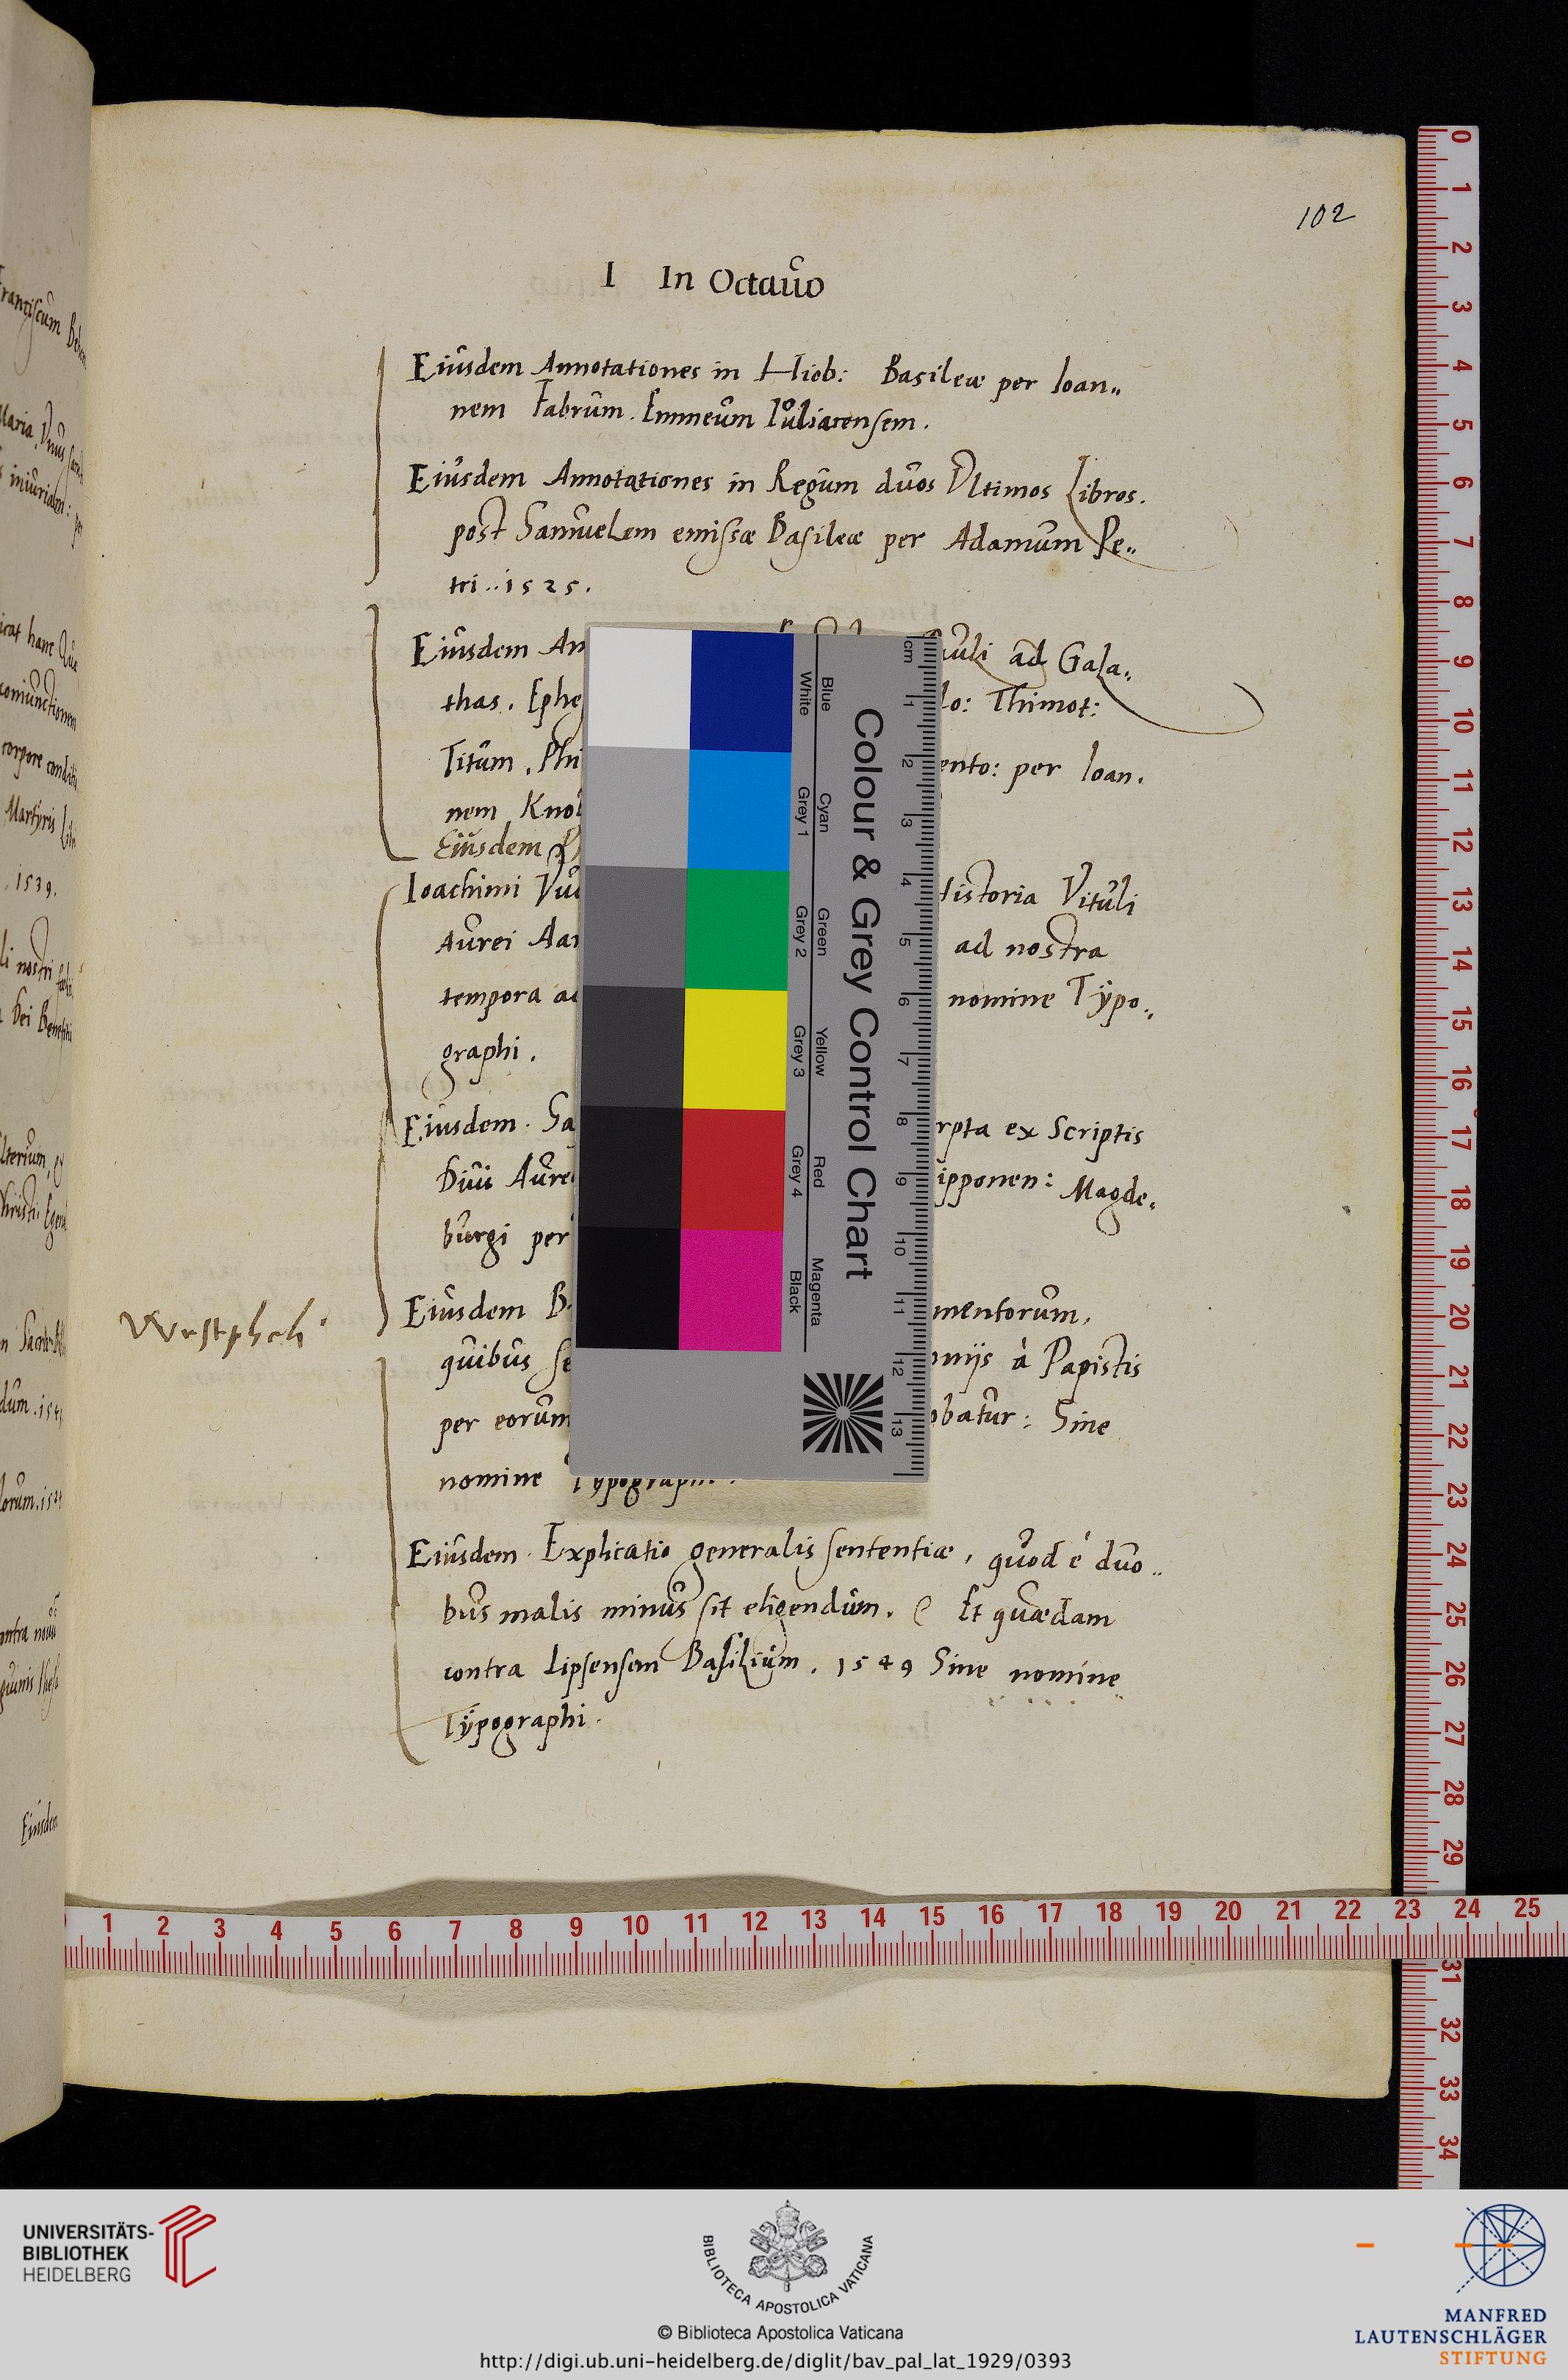 102
I In Octauo
Eiusdem Annotationes in Hiob: Basileæ per Ioan„
nem Fabrum. Emmeum Iuliacensem.
Eiusdem Annotationes in Regum duos Vltimos Libros.
post Samuelem emissæ Basileæ per Adamum Pe„
tri..1525.
Eiusdem An uli ad Gala„
thas. Ephe lo: Thimot:
Titum, Phi ento: per Ioan.
nem Knob
Eiusdem
Ioachimi Vu Historia Vituli
Aurei Aar ad nostra
tempora ad nomine Typo„
graphi.
Eiusdem. Sa rpta ex Scriptis
Diui Aure ipponen: Magde„
burgi per
Westphali
Eiusdem B mentorum,
quibus se onijs à Papistis
per eorum obatur: Sine
nomine Typographi.
Eiusdem. Explicatio generalis sententiæ, quod è duo„
bus malis minus sit eligendum. Et quædam
contra Lipsensem Basilium. 1549 Sine nomine
Typographi.
1539.
nostri
Eiusdem
Colour & Grey Control Chart
Blue
White
Cyan
Grey 1
Green
Grey 2
Yellow
Grey 3
Red
Grey 4
Magenta
Black
cm 1 2 3 4 5 6 7 8 9 10 11 12 13
0 1 2 3 4 5 6 7 8 9 10 11 12 13 14 15 16 17 18 19 20 21 22 23 24 25 26 27 28 29 31 32 33 34
1 2 3 4 5 6 7 8 9 10 11 12 13 14 15 16 17 18 19 20 21 22 23 24 25
UNIVERSITÄTS-
BIBLIOTHEK
HEIDELBERG
BIBLIOTECA APOSTOLICA VATICANA
© Biblioteca Apostolica Vaticana
http://digi.ub.uni-heidelberg.de/diglit/bav_pal_lat_1929/0393
MANFRED
LAUTENSCHLÄGER
STIFTUNG